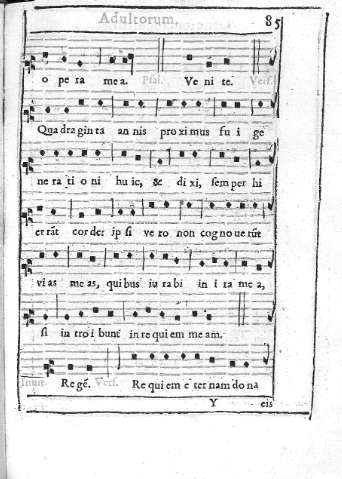 Adultorum. 85
o pe ra me a. Psal. Ve ni te. Vers.
Qua dra gin ta an nis pro xi mus fu i ge
ne ra ti o ni hu ic, & di xi, sem per hi
er rāt cor de: ip si ve ro non cog no ue rūt
vi as me as, qui bus iu ra bi in i ra me a,
si in tro i bunt in re qui em me am.
Inuit. Re gē. Vers. Re qui em e ter nam do na
Y eis